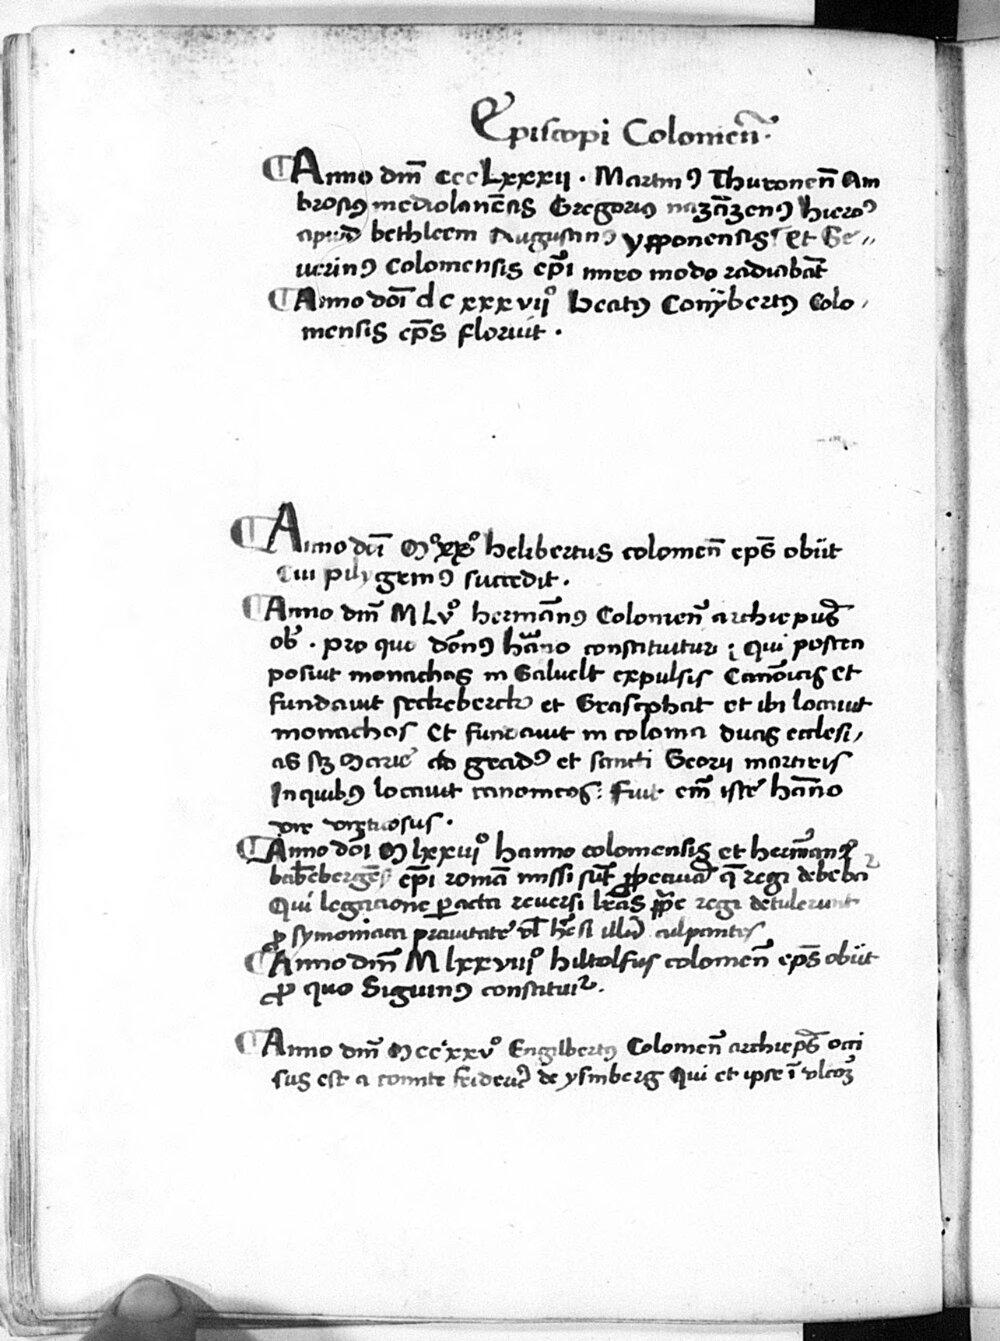 Episcopi Colonień.
Anno dm̄ cccLxxxij. Martinꝰ Thuronen̄ Am
brosiꝰ mediolanēs̄ Gregoriꝰ nazāzenꝰ hieroꝰ
apud bethleem Augustinꝰ ypponensis et Se„
uerinꝰ Coloniensis ep̄i miro modo radiabāt
Anno dōi dcxxxvijº beatꝰ Conỹbertꝰ Colo,
niensis ep̄s floruit.
Anno dn̄i Mºxxº helibertus colonień ep̄s obijt
Cui pilygrimꝰ succedit.
Anno dm̄ MLvº hermāꝰ Colonień archiepus̄
ob̄. pro quo dōnꝰ hāno constituitur; Qui postea
posuit monachos in Salvelt expulsis Canōicis et
fundauit et Grascphat et ibi locauit
monachos Et fundauit in colonia duas ecclesi,
as sꝫ Marie ad gradꝰ et sancti Georij martiris
In quibꝰ locauit canonicos: Fuit em̄ iste hāno
vir virtuosus.
Anno dōi M lxxiijº hanno coloniensis et hermānꝰ
babēbergēs̄ ep̄i romā missi sūt q̄ regi
Qui legacione ꝑacta reuersi lr̄as pp̄e regi detulerunt
ꝓ symoniaca prauitate vl̄ hēsi illū culpantes
Anno dm̄ M lxxviijº hiltolfus colonień ep̄s obijt
ꝓ quo Siguinꝰ constituiť.
Anno dm̄ Mccºxxvº Engilbertꝰ Colonień archiep̄s occi
sus est a comite friderić de ysinberg Qui et ipse ī vlcōꝫ